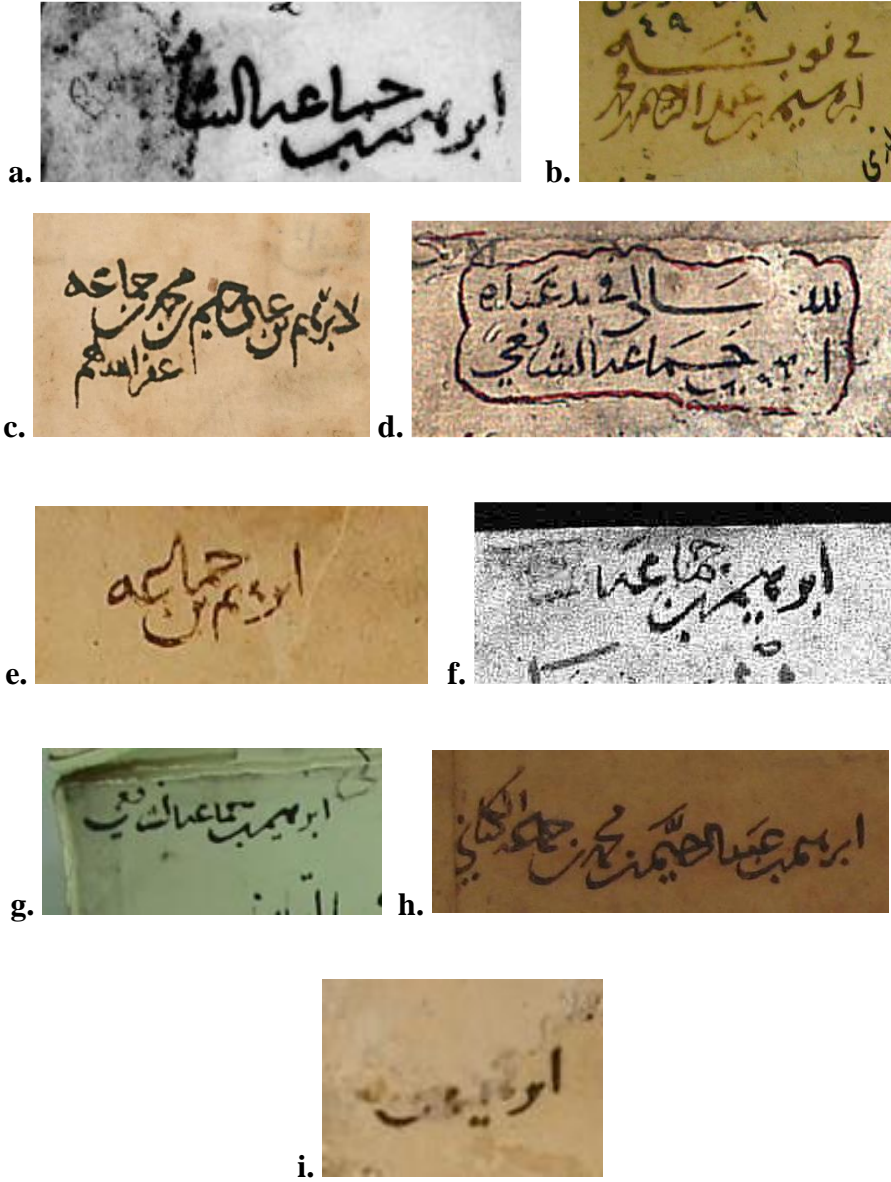 a.
ابرهيم بن جماعه الشا
b.
في نوبة
ابرهيم بن عبد الرحيم بن محمد
c.
لابرهيم بن عبد الرحيم بن محمد بن جماعه
عفر الله لهم
d.
لله في يد عبده
ابرهيم بن جماعه الشافعي
e.
ابرهيم بن جماعه
f.
ابرهيم بن جماعه
g.
ابرهيم بن جماعه الشافعي
h.
ابرهيم بن عبد الرحيم بن محمد بن جماعه الكناني
i.
ابرهيم بن